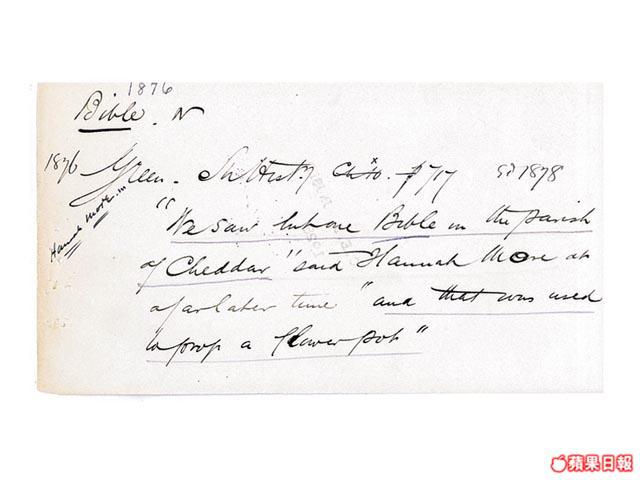 1876
Bible. N
1876 Green. Sh Hist. Ch x. 717 ed 1878
Hannah More in
"We saw but one Bible in the parish
of Cheddar" said Hannah More at
a far later time "and that was used
to prop a flower pot"
蘋果日報